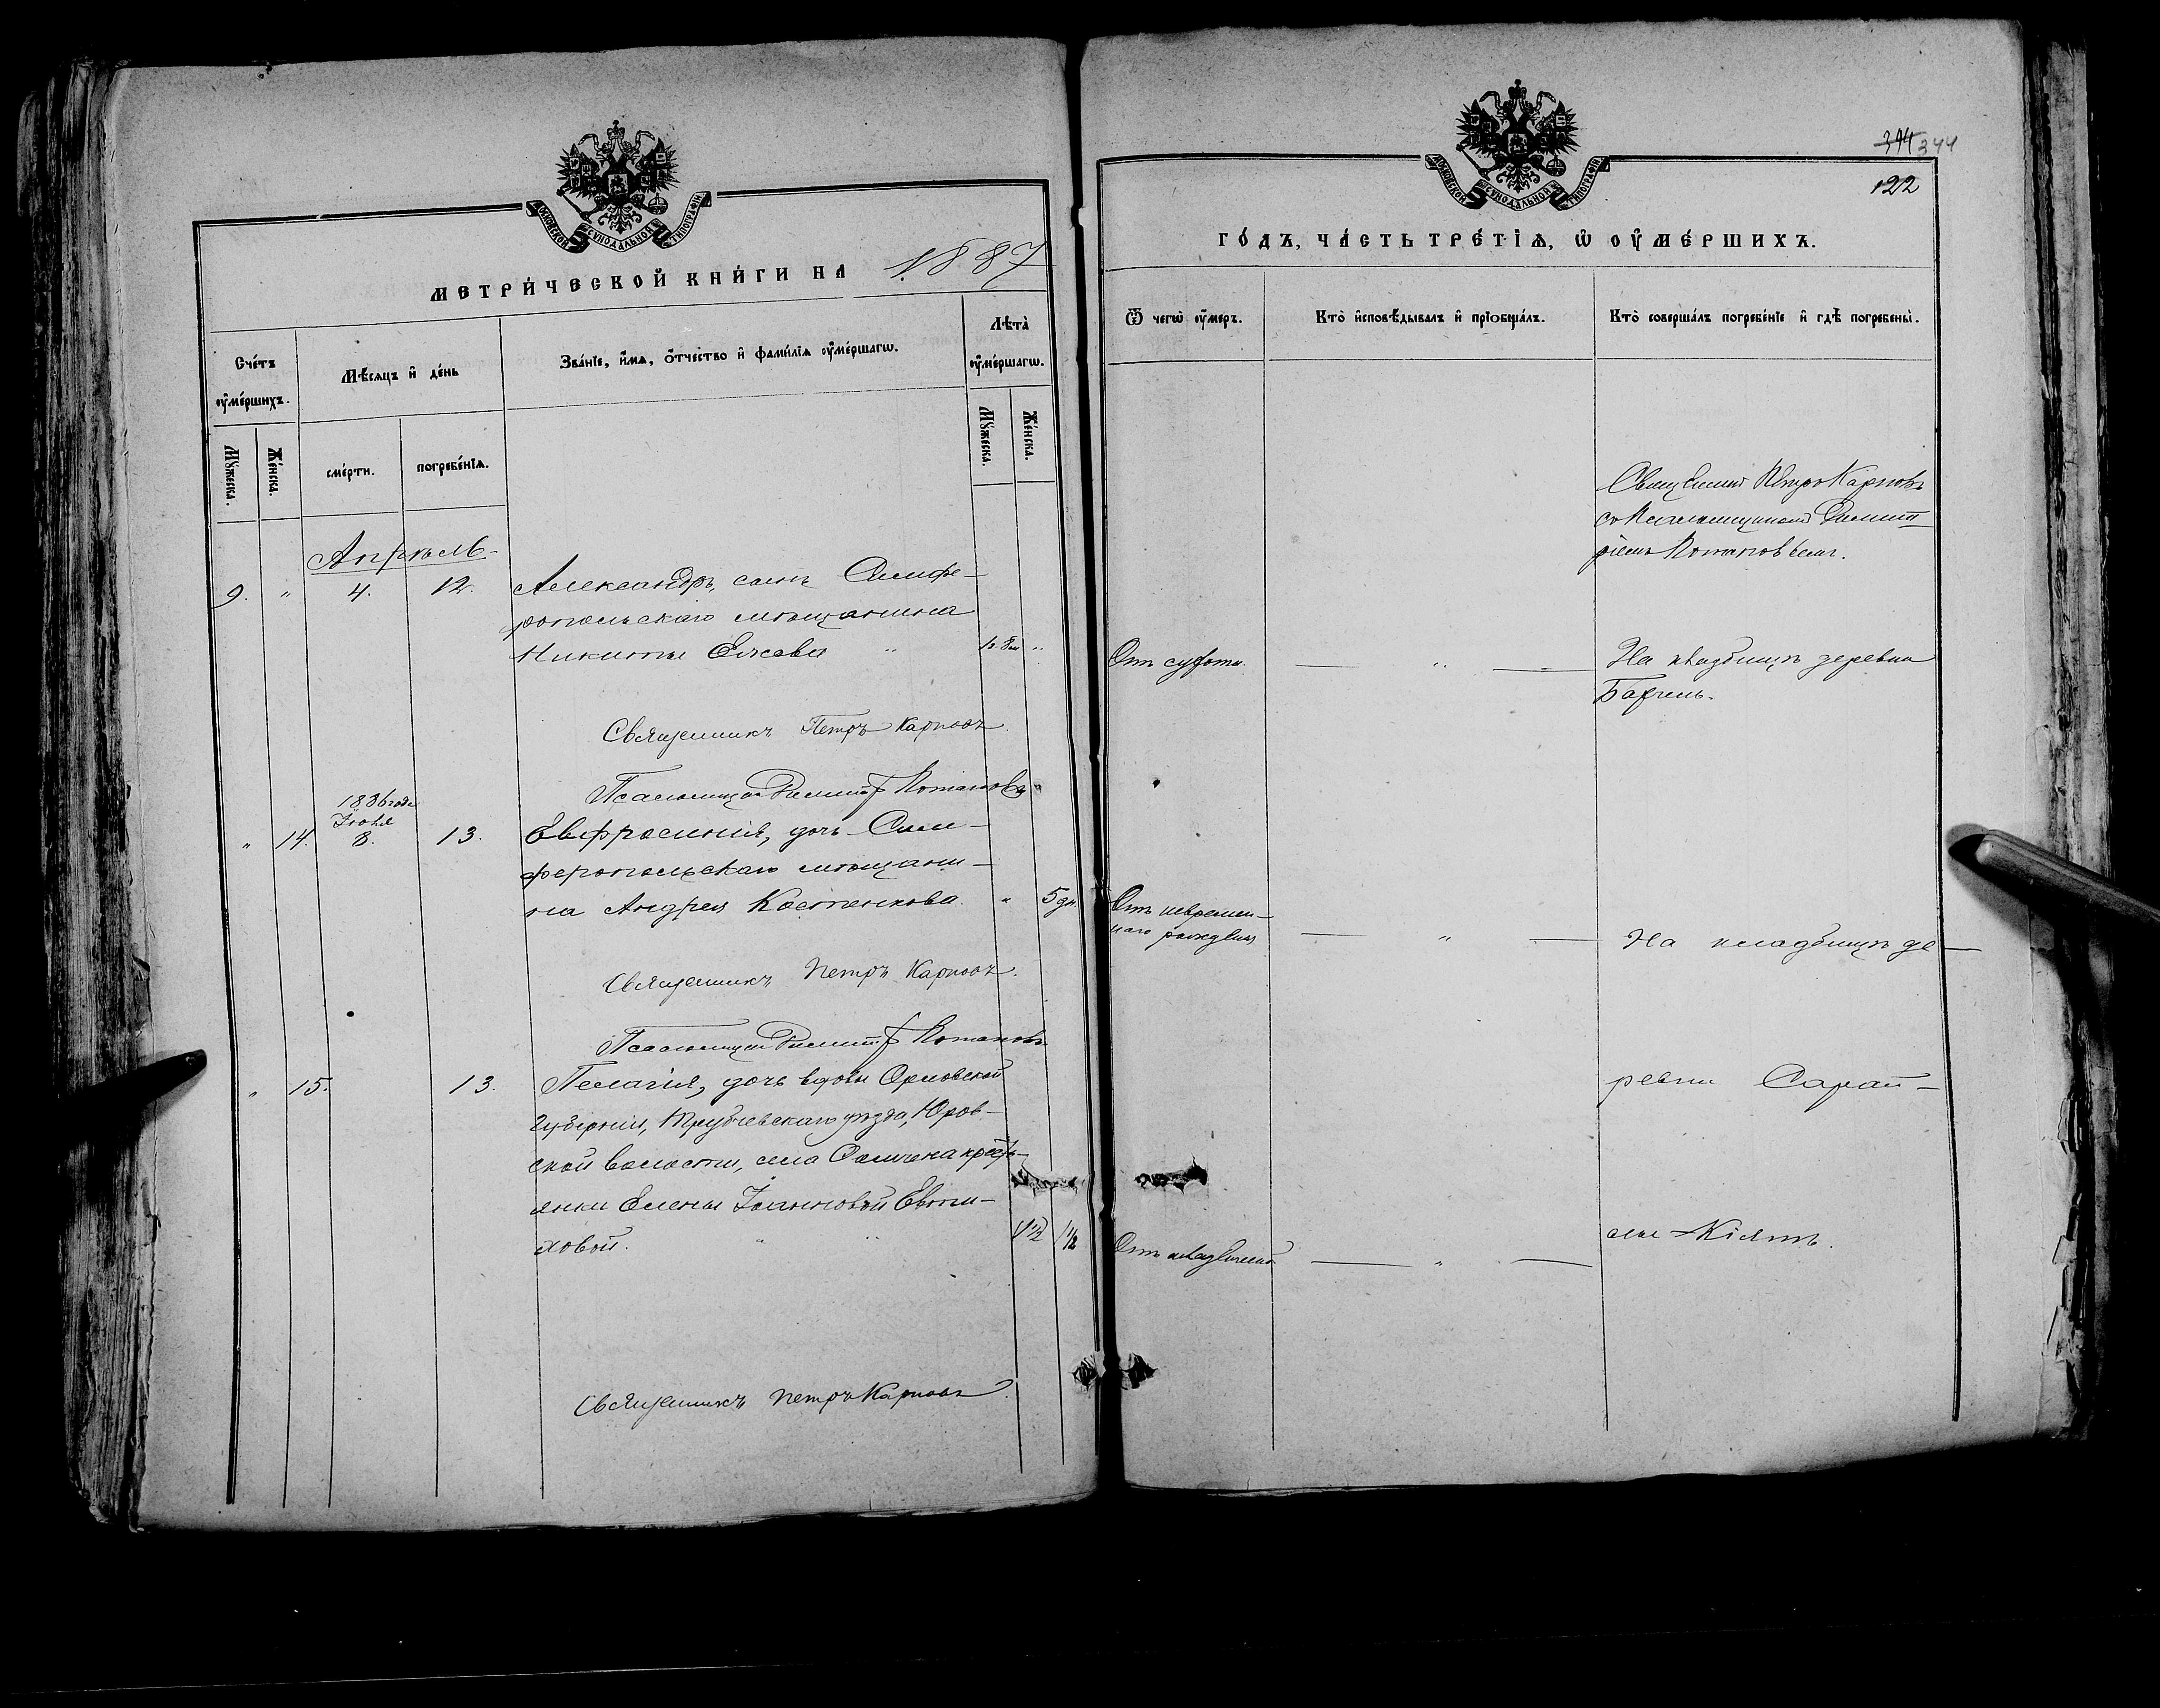 МОСКОВСКОЙ СѴНОДАЛЬНОЙ ТИПОГРАФІИ
МЕТРИ́ЧЕСКОЙ КНИ́ГИ НА 1887
Сче́тъ ᲂу҆ме́ршихъ.
Мѣ́сяцъ и҆ де́нь
Зва́нїе, и҆́мѧ, ѻ҆́тчество и҆ фами́лїѧ ᲂу҆ме́ршагѡ.
Лѣта̀ ᲂу҆ме́ршагѡ.
Мꙋ́жеска.
Же́нска.
сме́рти.
погребе́нїѧ.
Мꙋ́жеска.
Же́нска.
Апрѣль
9. " 4. 12. Александръ, сынъ Симфе-
ропольскаго мѣщанина
Никиты Ежова " "
Священникъ Петръ Карповъ.
Псаломщикъ Димитр Потаповъ
1886 года
Іюля
" 14. 8. 13. Евфросинія, дочь Сим-
феропольскаго мѣщани-
на Андрея Костенкова. " 5 дн.
Священникъ Петръ Карповъ.
Псаломщикъ Димитр Потаповъ
" 15. 13. Пелагія, дочь вдовы Орловской
Губерніи, Трубчевскаго уѣзда, Юров-
ской волости, села крест-
янки Елены Іоанновой Евти-
ховой. " " 1½ 1½
Священникъ Петръ Карповъ.
МОСКОВСКОЙ СѴНОДАЛЬНОЙ ТИПОГРАФІИ
344 344
122
ГО́ДЪ, ЧА́СТЬ ТРЕ́ТЇѦ, Ѡ҆ ОУ҆МЕ́РШИХЪ.
Ѿ чегѡ̀ ᲂу҆́меръ.
Кто̀ и҆сповѣ́дывалъ и҆ прїобща́лъ.
Кто̀ соверша́лъ погребе́нїе и҆ гдѣ̀ погребены̀.
Священникъ Петръ Карповъ
съ Псаломщикомъ Димит
ріемъ Потаповымъ.
Отъ " На кладбищѣ деревни
Барчель.
Отъ невремен-
наго рожденія " На кладбищѣ де-
ревни Сарай-
Отъ " лы-Кіятъ.